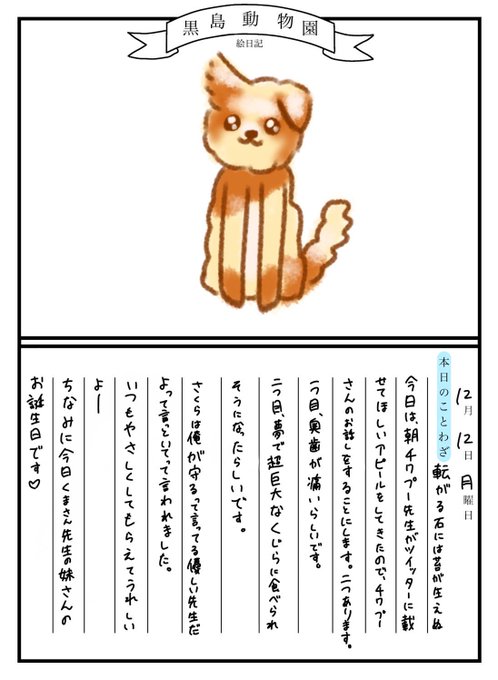 黒島動物園
絵日記
12月12日月曜日
本日のことわざ 転がる石には苔が生えぬ
今日は、朝チワプー先生がツイッターに載
せてほしいアピールをしてきたので、チワプー
さんのお話しをすることにします。二つあります。
一つ目、奥歯が痛いらしいです。
二つ目、夢で超巨大なくじらに食べられ
そうになったらしいです。
さくらは俺が守るって言ってる優しい先生だ
よって言っといてって言われました。
いつもやさしくしてもらえてうれしい
よー
ちなみに今日くまさん先生の妹さんの
お誕生日です♡